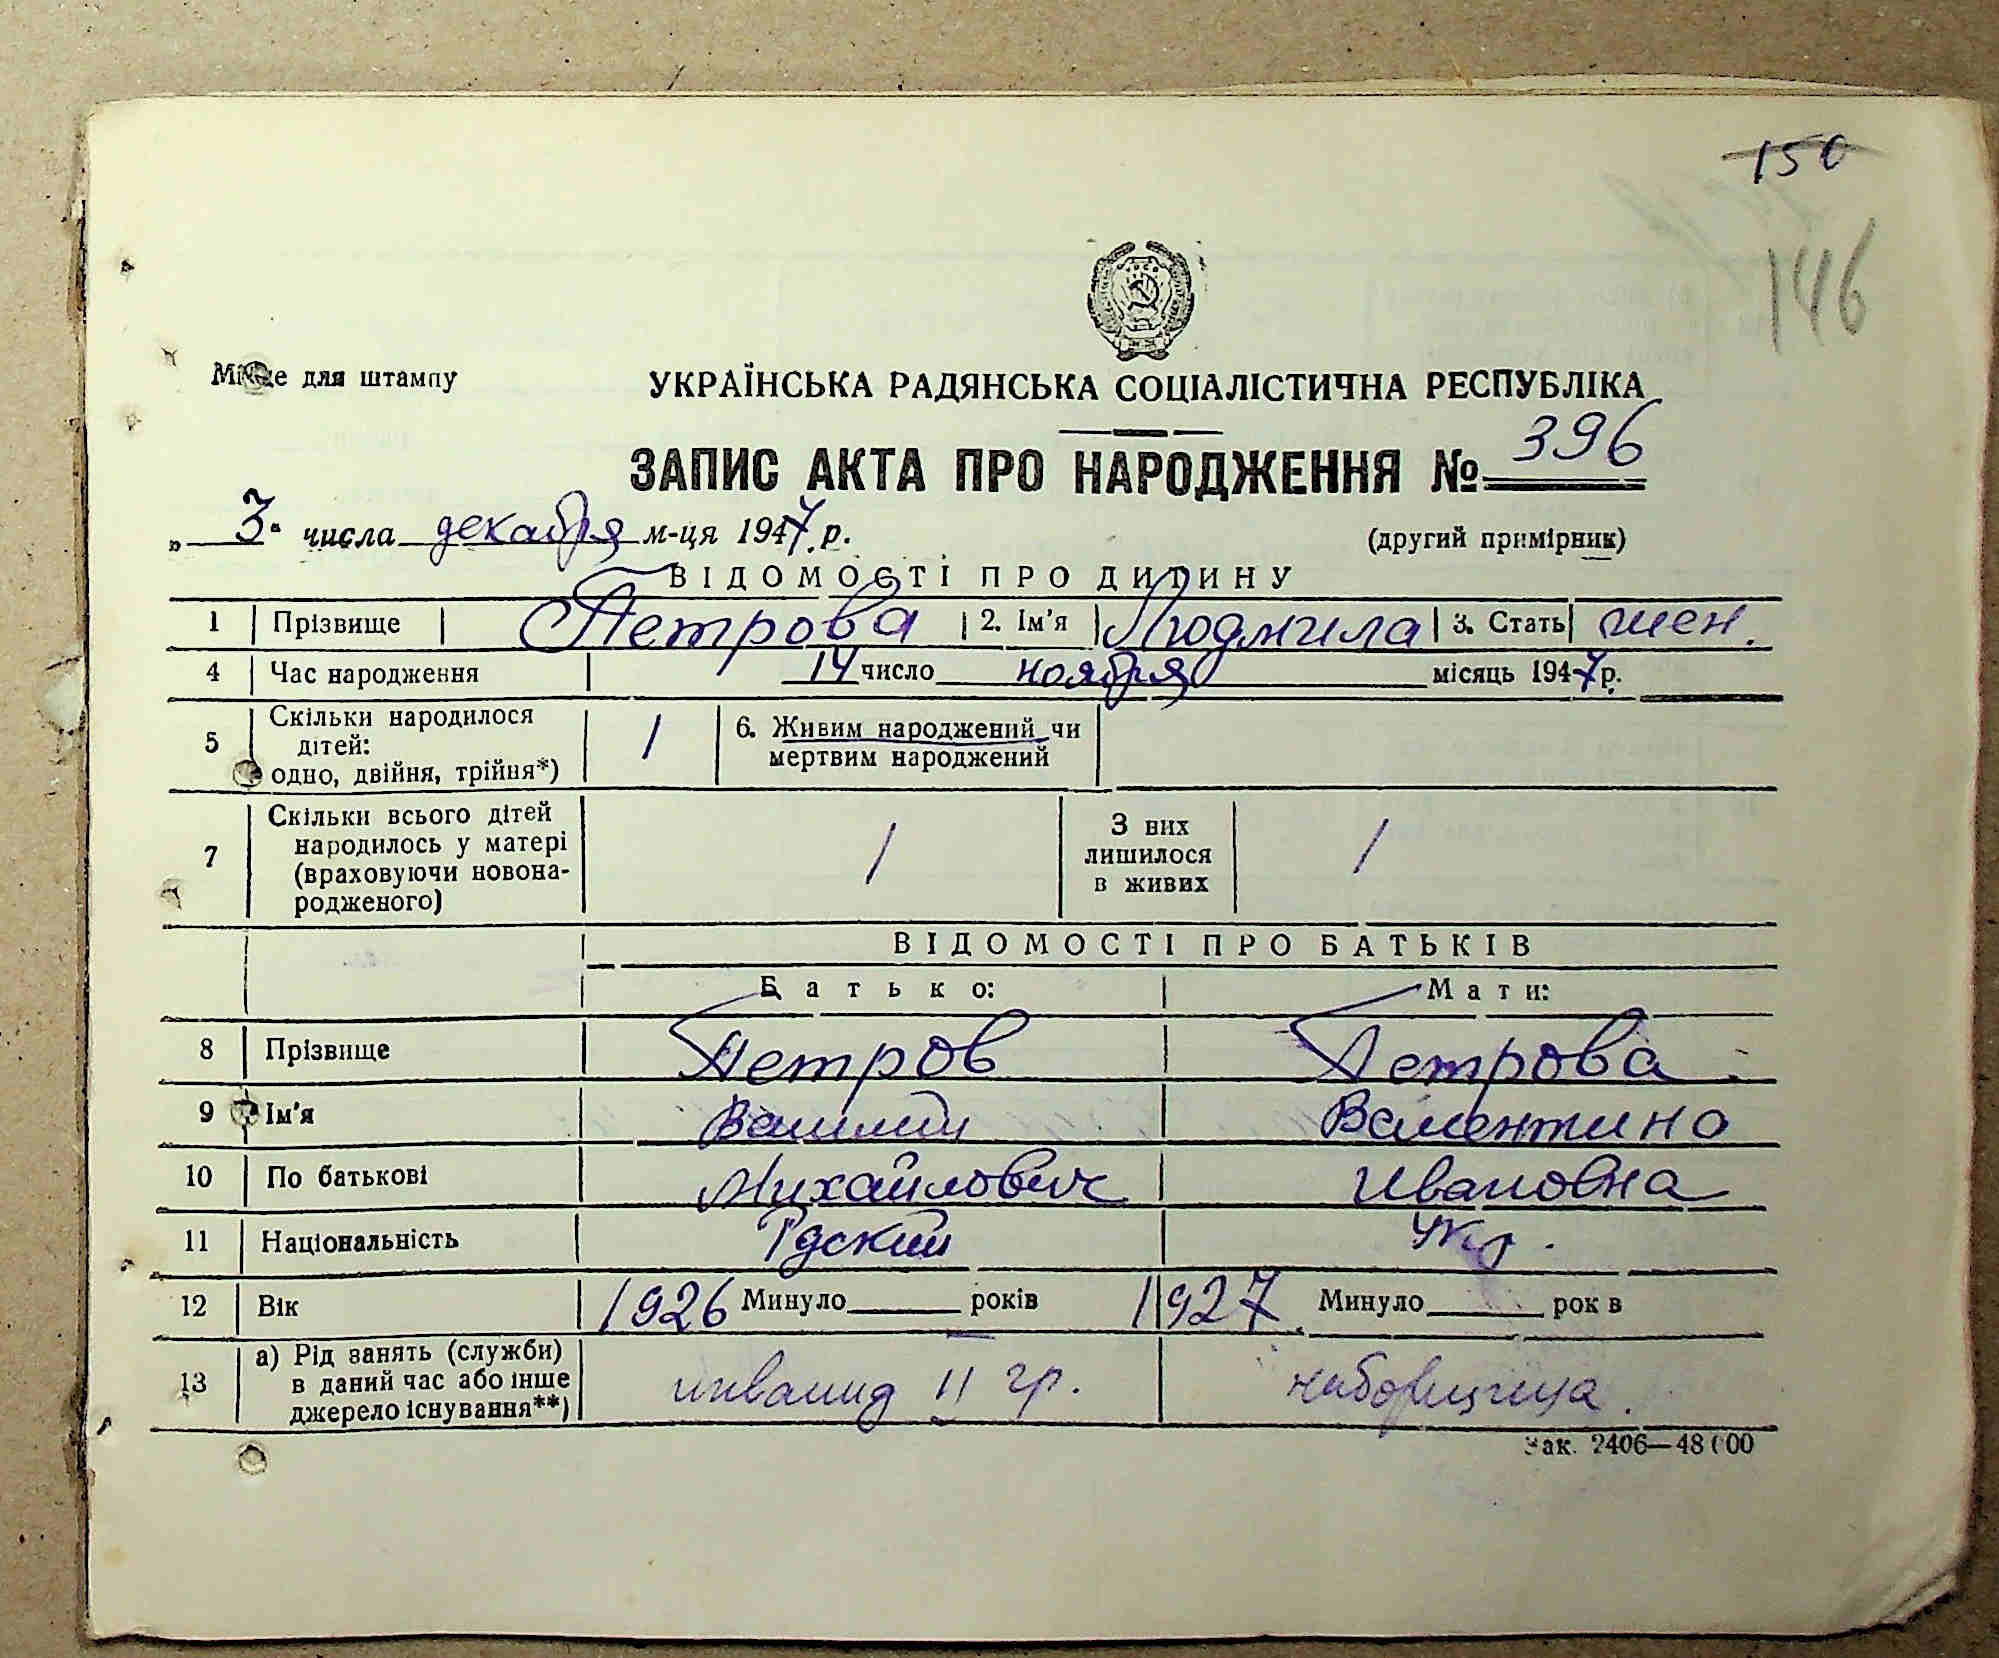 150
146
Місце для штампу
УКРАЇНСЬКА РАДЯНСЬКА СОЦІАЛІСТИЧНА РЕСПУБЛІКА
ЗАПИС АКТА ПРО НАРОДЖЕННЯ № 396
„ 3 " числа декабря м-ця 1947 р.
(другий примірник)
ВІДОМОСТІ ПРО ДИТИНУ
1 Прізвище Петрова 2. Ім'я Людмила 3. Стать жен.
4 Час народження 14 число ноября місяць 1947 р.
5 Скільки народилося дітей: одно, двійня, трійня*) 1 6. Живим народжений чи мертвим народжений
7 Скільки всього дітей народилось у матері (враховуючи новонародженого) 1 З них лишилося в живих 1
ВІДОМОСТІ ПРО БАТЬКІВ
Батько: Мати:
8 Прізвище Петров Петрова
9 Ім'я Валентина
10 По батькові Михайлович Ивановна
11 Національність укр.
12 Вік 1926 Минуло років 1927 Минуло рок в
13 а) Рід занять (служби) в даний час або інше джерело існування**) инвалид II гр. наборщица.
Зак. 2406—48000